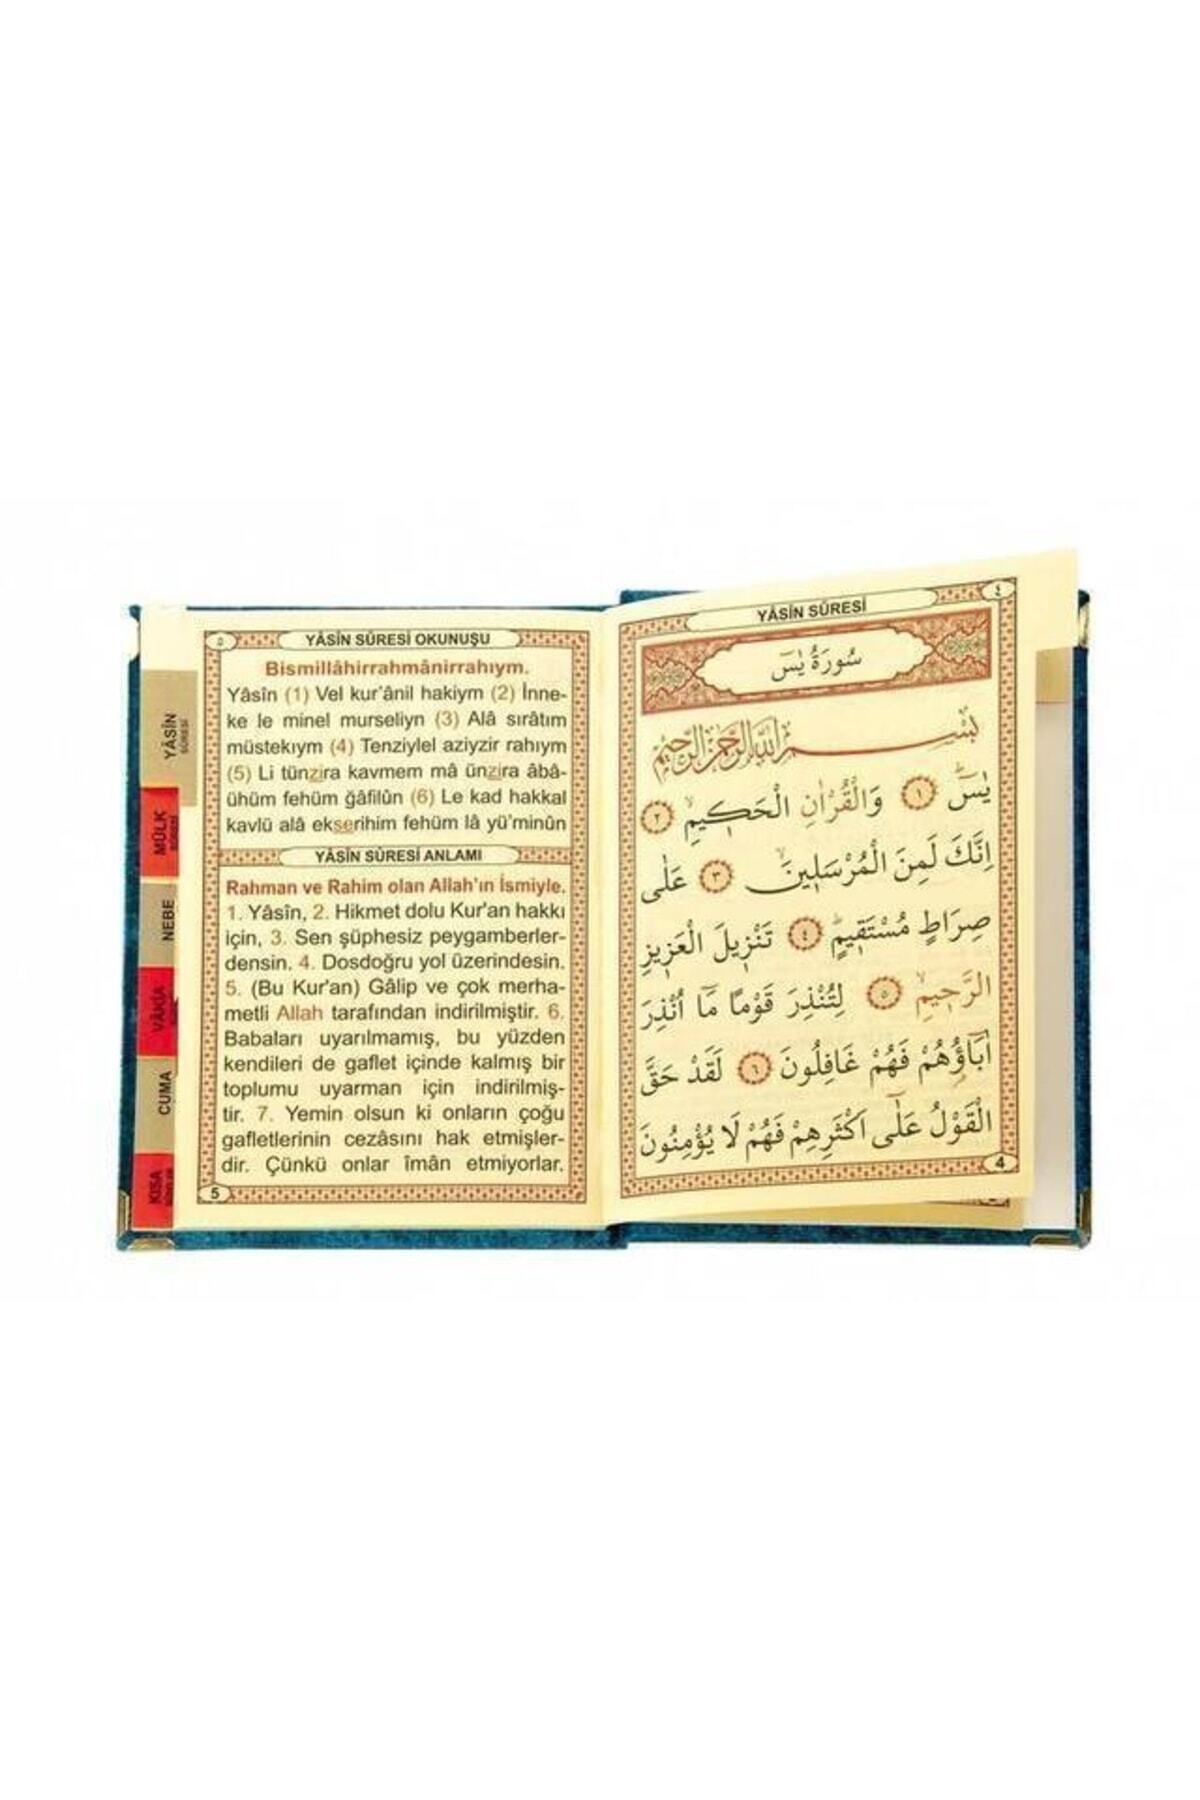 YÂSÎN SÛRESİ
٤
سُورَةُ يٰسٓ
بِسْمِ اللّٰهِ الرَّحْمٰنِ الرَّحِيمِ
يٰسٓ ﴿١﴾ وَالْقُرْاٰنِ الْحَكِيمِ ﴿٢﴾
اِنَّكَ لَمِنَ الْمُرْسَلِينَ ﴿٣﴾ عَلٰى
صِرَاطٍ مُسْتَقِيمٍ ﴿٤﴾ تَنْزِيلَ الْعَزِيزِ
الرَّحِيمِ ﴿٥﴾ لِتُنْذِرَ قَوْمًا مَٓا اُنْذِرَ
اٰبَٓاؤُ۬هُمْ فَهُمْ غَافِلُونَ ﴿٦﴾ لَقَدْ حَقَّ
الْقَوْلُ عَلٰٓى اَكْثَرِهِمْ فَهُمْ لَا يُؤْمِنُونَ
4
٥
YÂSÎN SÛRESİ OKUNUŞU
Bismillâhirrahmânirrahıym.
Yâsîn (1) Vel kur'ânil hakiym (2) İnne-
ke le minel murseliyn (3) Alâ sırâtım
müstekıym (4) Tenziylel aziyzir rahıym
(5) Li tünzira kavmem mâ ünzira âbâ-
ühüm fehüm ğâfilûn (6) Le kad hakkal
kavlü alâ ekserihim fehüm lâ yü'minûn
YÂSÎN SÛRESİ ANLAMI
Rahman ve Rahim olan Allah'ın İsmiyle.
1. Yâsîn, 2. Hikmet dolu Kur'an hakkı
için, 3. Sen şüphesiz peygamberler-
densin. 4. Dosdoğru yol üzerindesin.
5. (Bu Kur'an) Gâlip ve çok merha-
metli Allah tarafından indirilmiştir. 6.
Babaları uyarılmamış, bu yüzden
kendileri de gaflet içinde kalmış bir
toplumu uyarman için indirilmiş-
tir. 7. Yemin olsun ki onların çoğu
gafletlerinin cezâsını hak etmişler-
dir. Çünkü onlar îmân etmiyorlar.
5
YÂSÎN
SÛRESİ
MÜLK
SÛRESİ
NEBE
VÂKİA
CUMA
KISA